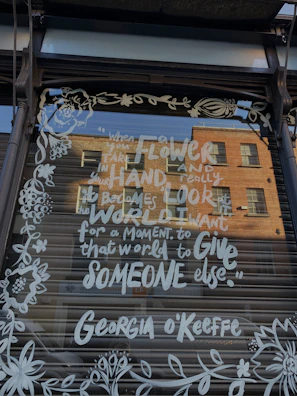 "When you
TAKE a FLOWER
IN your HAND AND really
LOOK at
it BECOMES
the WORLD. I WANT
for a MOMENT. to
that world to GIVE
SOMEONE else."
GEORGIA O'KEEFFE